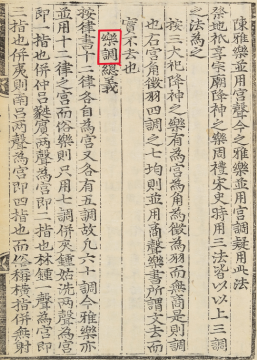 陳雅樂並用宮聲今之雅樂並用宮調疑用此法
祭地祇享宗廟降神之樂周禮宋史時用三法皆以以上三調
之法爲之
按三大祀降神之樂有爲宮爲角爲徵爲羽而無商是則調
也右宮角徵羽四調之七均則並用商聲樂書所謂文去而
實不去也
樂調總義
按律書十二律各自爲宮又各有五調故凡六十調今雅樂亦
並用十二律之宮而俗樂則只用七調併夾鍾姑洗兩聲爲宮
即一指也併仲呂蕤賓兩聲爲宮即二指也林鍾一聲爲宮即
三指也併夷則南呂兩聲爲宮即四指也而俗稱橫指併無射